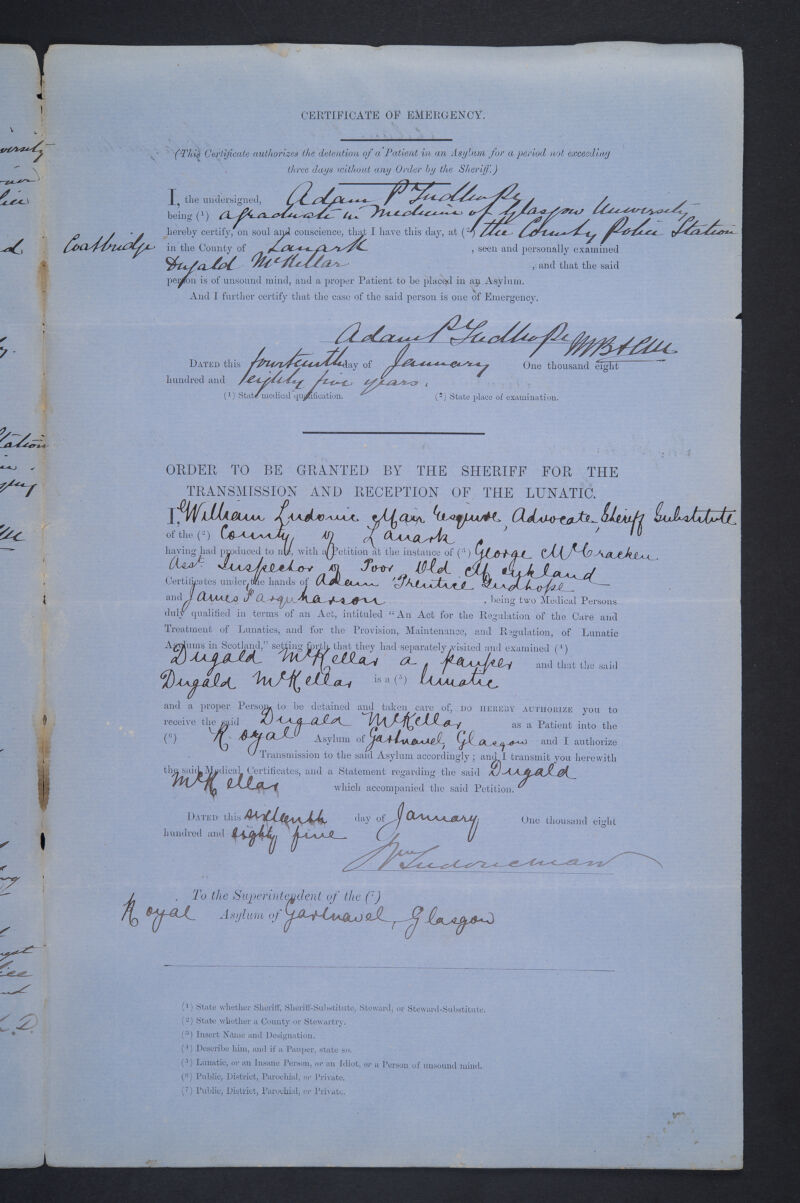 CERTIFICATE OF EMERGENCY.
(This Certificate authorizes the detention of a Patient in an Asylum for a period not exceeding
three days without any Order by the Sheriff.)
I, the undersigned, Adam P Tudhope
being (1) a graduate in Medicine of Glasgow University
hereby certify, on soul and conscience, that I have this day, at (2) the County Police Station
Coatbridge in the County of Lanark , seen and personally examined
Dugald McKellar , and that the said
person is of unsound mind, and a proper Patient to be placed in an Asylum.
And I further certify that the case of the said person is one of Emergency.
Adam P Tudhope MB & CM
DATED this fourteenth day of January One thousand eight
hundred and eighty five years.
(1) State medical qualification. (2) State place of examination.
ORDER TO BE GRANTED BY THE SHERIFF FOR THE
TRANSMISSION AND RECEPTION OF THE LUNATIC.
I, William Ludovic Mair Esquire, Advocate, Sheriff Substitute
of the (2) County of Lanark
having had produced to me, with a Petition at the instance of (3) George McCracken
Asst. Inspector of Poor Old Monkland
Certificates under the hands of Adam Prentice Tudhope
and James Farquharson , being two Medical Persons
duly qualified in terms of an Act, intituled "An Act for the Regulation of the Care and
Treatment of Lunatics, and for the Provision, Maintenance, and Regulation, of Lunatic
Asylums in Scotland," setting forth that they had separately visited and examined (4)
Dugald McKellar a pauper and that the said
Dugald McKellar is a (5) lunatic
and a proper Person to be detained and taken care of, DO HEREBY AUTHORIZE you to
receive the said Dugald McKellar as a Patient into the
(6) Royal Asylum of Gartnavel, Glasgow and I authorize
Transmission to the said Asylum accordingly; and I transmit you herewith
the said Medical Certificates, and a Statement regarding the said Dugald
McKellar which accompanied the said Petition.
DATED this sixteenth day of January One thousand eight
hundred and eighty five
Wm Ludovic Mair
To the Superintendent of the (7)
Royal Asylum of Gartnavel, Glasgow
(1) State whether Sheriff, Sheriff-Substitute, Steward, or Steward-Substitute.
(2) State whether a County or Stewartry.
(3) Insert Name and Designation.
(4) Describe him, and if a Pauper, state so.
(5) Lunatic, or an Insane Person, or an Idiot, or a Person of unsound mind.
(6) Public, District, Parochial, or Private.
(7) Public, District, Parochial, or Private.